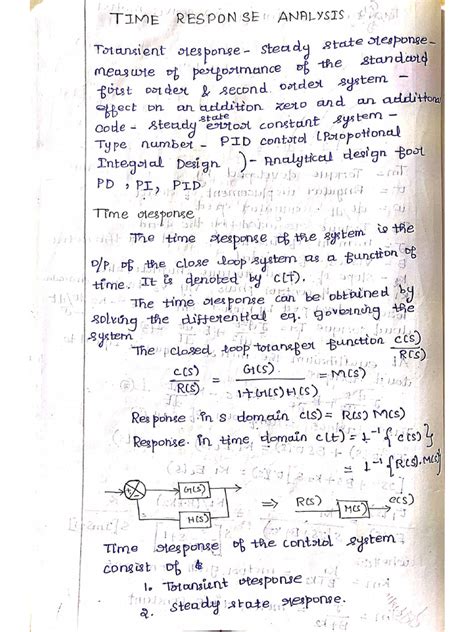 TIME RESPONSE ANALYSIS
Transient response - steady state response -
measure of performance of the standard
first order & second order system -
effect on an addition zero and an additional
code - steady state error constant system -
Type number - PID control (Propotional
Integral Design ) - Analytical design for
PD, PI, PID
Time response
The time response of the system is the
O/P of the close loop system as a function of
time. It is denoted by c(t).
The time response can be obtained by
solving the differential eq. governing the
system
The closed loop transfer function C(S)/R(S)
C(S)/R(S) = G(S)/1+G(S)H(S) = M(S)
Response in s domain C(S) = R(S) M(S)
Response in time domain c(t) = L⁻¹{C(S)}
= L⁻¹{R(S).M(S)}
G(S)
H(S)
⇒ R(S) → M(S) → C(S)
Time response of the control system
consist of
1. Transient response
2. Steady state response.